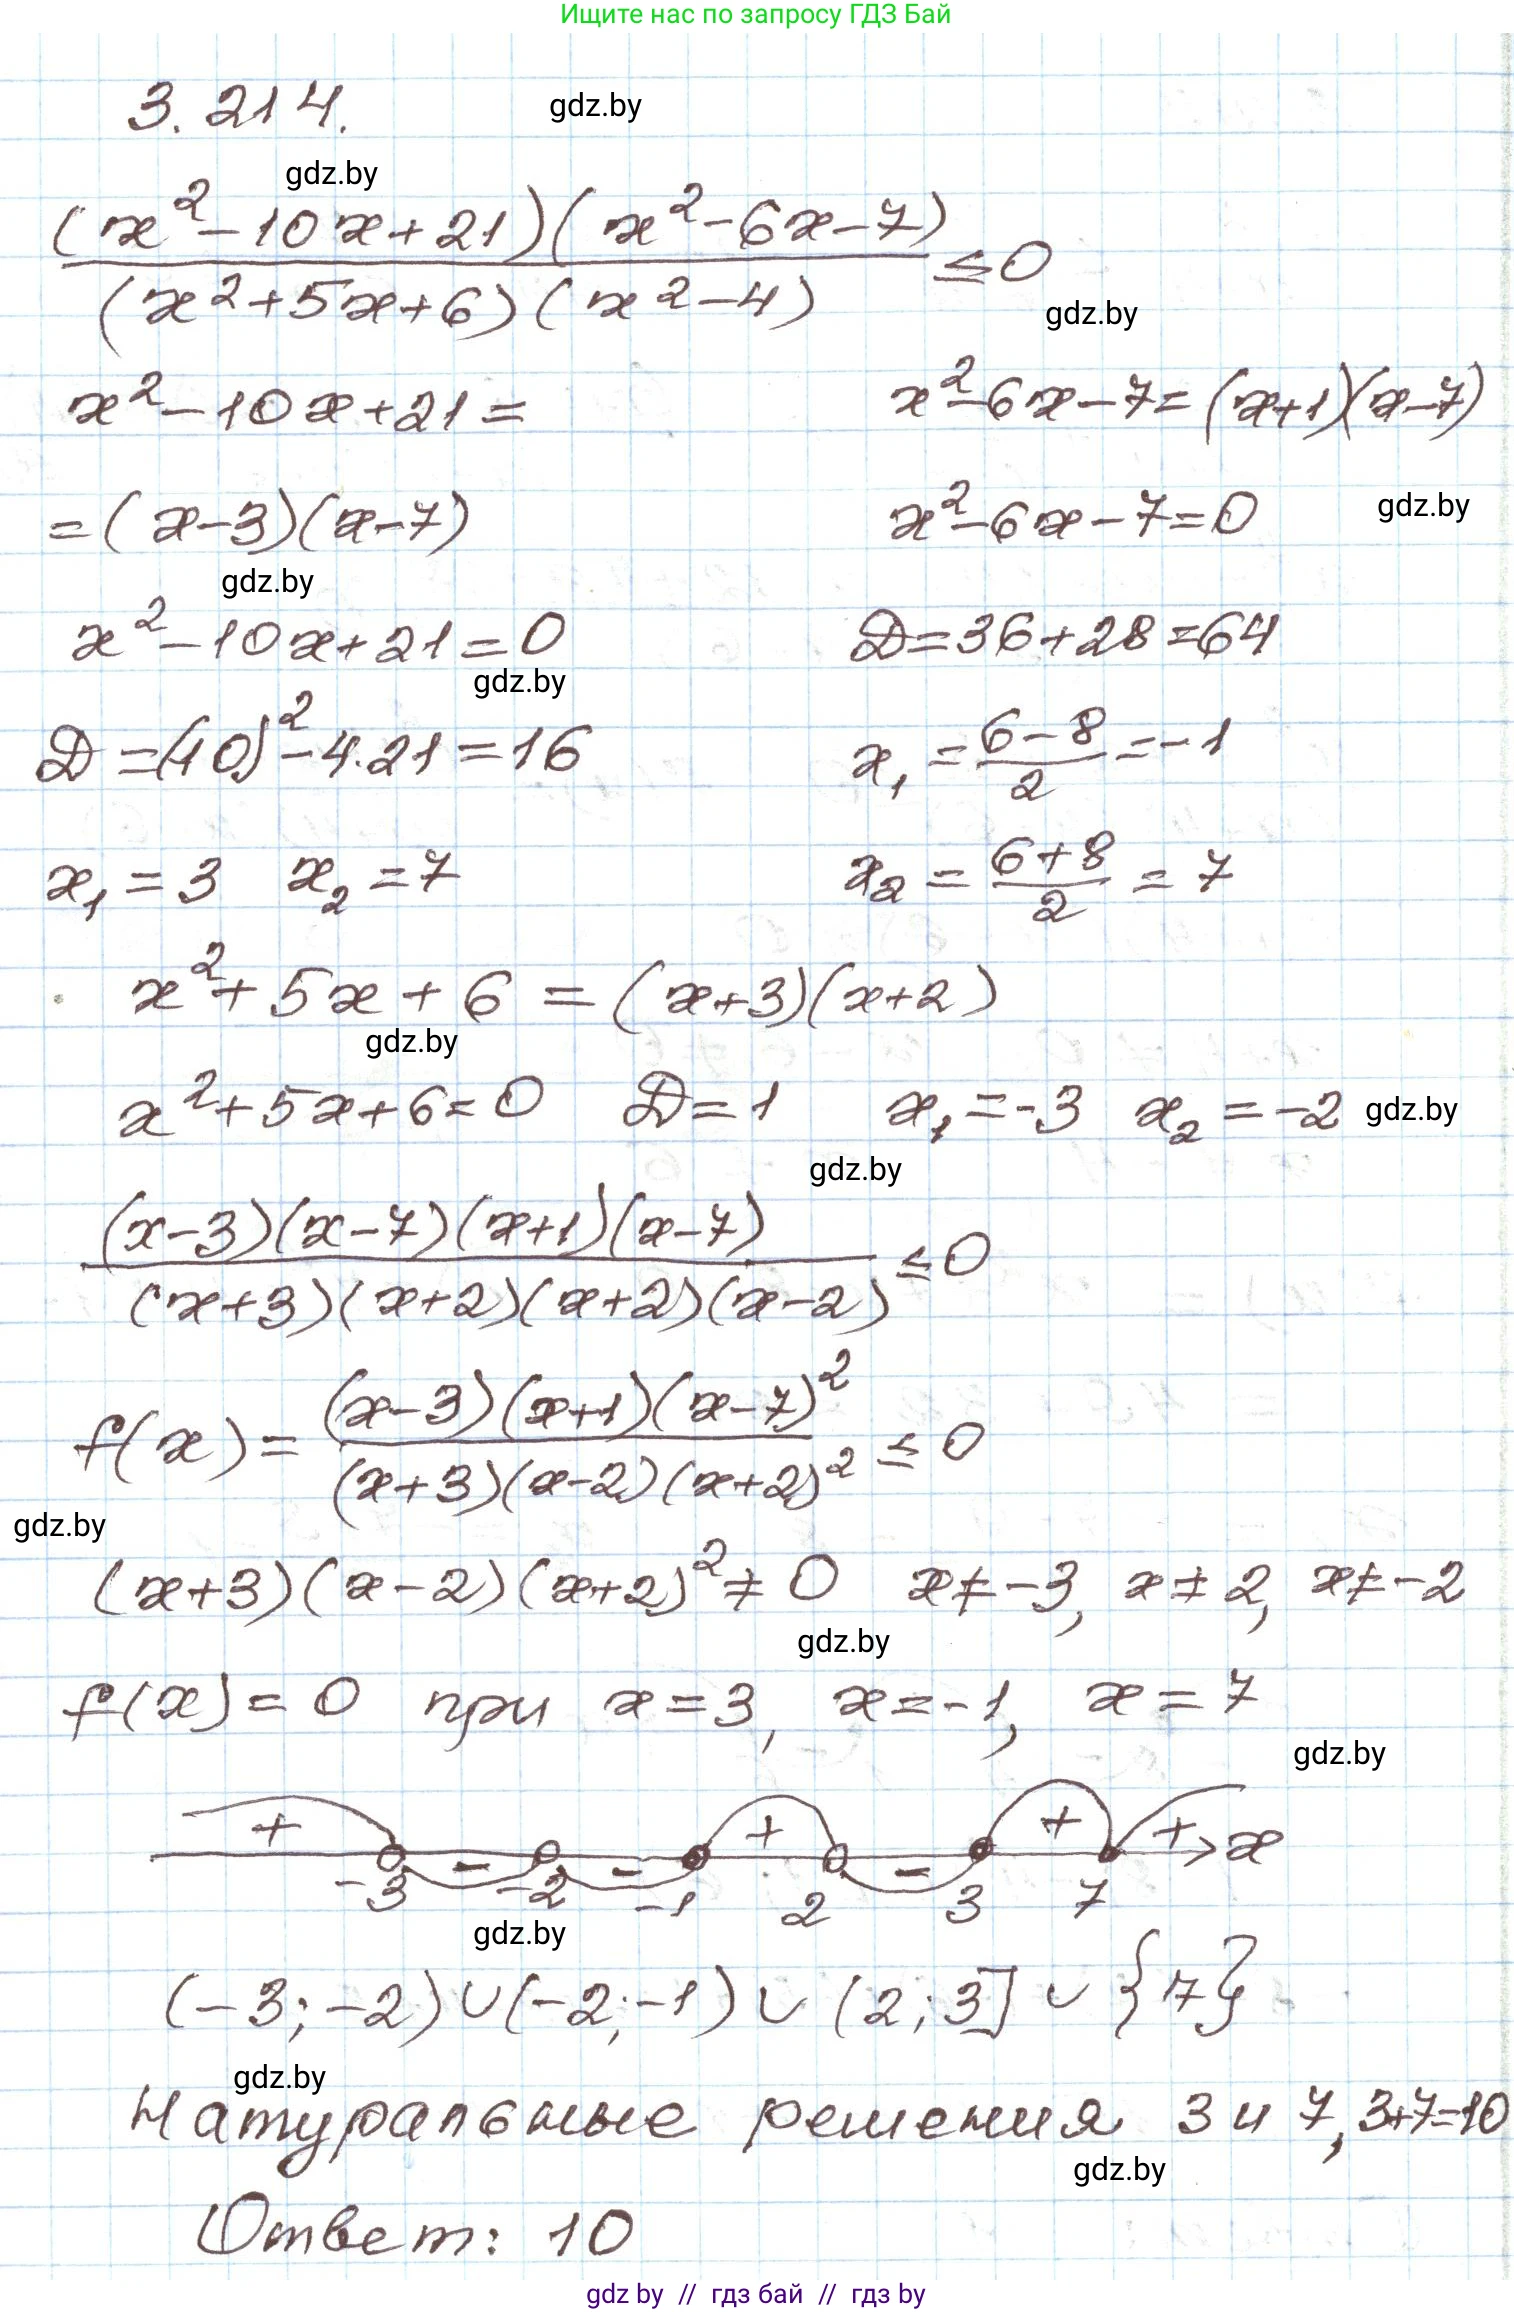 Ищите нас по запросу ГДЗ Бай
3.214.
gdz.by
gdz.by
(x²-10x+21)(x²-6x-7)
≤0
(x²+5x+6)(x²-4)
gdz.by
x²-10x+21=
x²-6x-7=(x+1)(x-7)
=(x-3)(x-7)
x²-6x-7=0
gdz.by
gdz.by
x²-10x+21=0
D=36+28=64
gdz.by
D=(10)²-4·21=16
x₁=(6-8)/2=-1
x₁=3 x₂=7
x₂=(6+8)/2=7
x²+5x+6=(x+3)(x+2)
gdz.by
x²+5x+6=0 D=1 x₁=-3 x₂=-2
gdz.by
gdz.by
(x-3)(x-7)(x+1)(x-7)
≤0
(x+3)(x+2)(x+2)(x-2)
f(x)=((x-3)(x+1)(x-7)²)/((x+3)(x-2)(x+2)²)≤0
gdz.by
(x+3)(x-2)(x+2)²≠0 x≠-3, x≠2, x≠-2
gdz.by
f(x)=0 при x=3, x=-1, x=7
gdz.by
+ - - + - + + x
-3 -2 -1 2 3 7
gdz.by
(-3;-2)∪(-2;-1)∪(2;3]∪{7}
gdz.by
Натуральные решения 3 и 7, 3+7=10
gdz.by
Ответ: 10
gdz by // гдз бай // гдз by